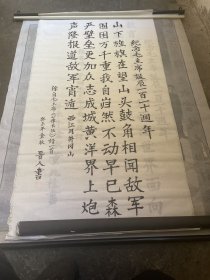 纪念毛主席诞辰一百二十週年
山下旌旗在望山头鼓角相闻敌军
围困万千重我自岿然不动早已森
严壁垒更加众志成城黄洋界上炮
声隆报道敌军宵遁 西江月井冈山
癸巳年